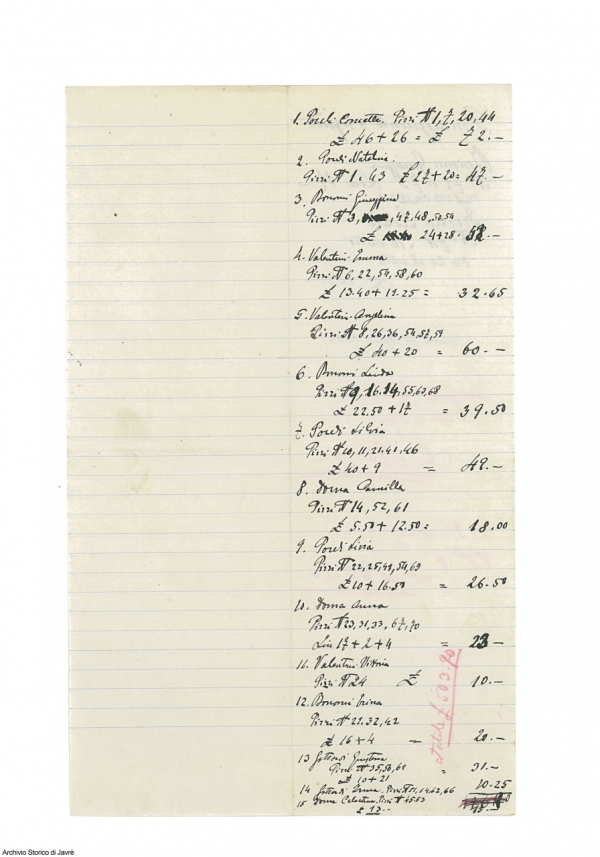 1. Poueli Concetta. Pizzi N 1, 7, 20, 44
£ 46 + 26 = £ 72.—
2. Natalina.
Pizzi N 1. 43 £ 27 + 20 = 47.—
3. Bonomi Giuseppina
Pizzi N 3, 47, 48, 50, 54
£ 24 + 28.
4. Valentini Emma
Pizzi N 6, 22, 54, 58, 60
£ 13.40 + 19.25 = 32.65
5. Valentini Angelina
Pizzi N 8, 26, 36, 54, 57, 59
£ 40 + 20 = 60.—
6. Bonomi Linda
Pizzi N 9, 16. 14, 55, 63, 68
£ 22.50 + 17 = 39.50
7. Silvia
Pizzi N 10, 11, 21. 41. 46
£ 40 + 9 = 49.—
8. Dorna Camilla
Pizzi N 14, 52, 61
£ 5.50 + 12.50 = 18.00
9. Livia
Pizzi N 22, 25, 49, 54, 63
£ 10 + 16.50 = 26.50
10. Dorna Anna
Pizzi N 23, 31, 33, 67, 70
Lire 17 + 2 + 4 = 23—
11. Valentini Vittoria
Pizzi N 24 £ 10.—
12. Bonomi Irina
Pizzi N 29. 32, 42
£ 16 + 4 = 20.—
13 Giustina
Pizzi N 35, 50, 62 = 31.—
£ 10 + 21
14 Emma. Pizzi N 62, 66 10.25
15 Dorna Celestina. Pizzi N 45 53
£ 13.—
Totale £ 503.90
Archivio Storico di Javrè